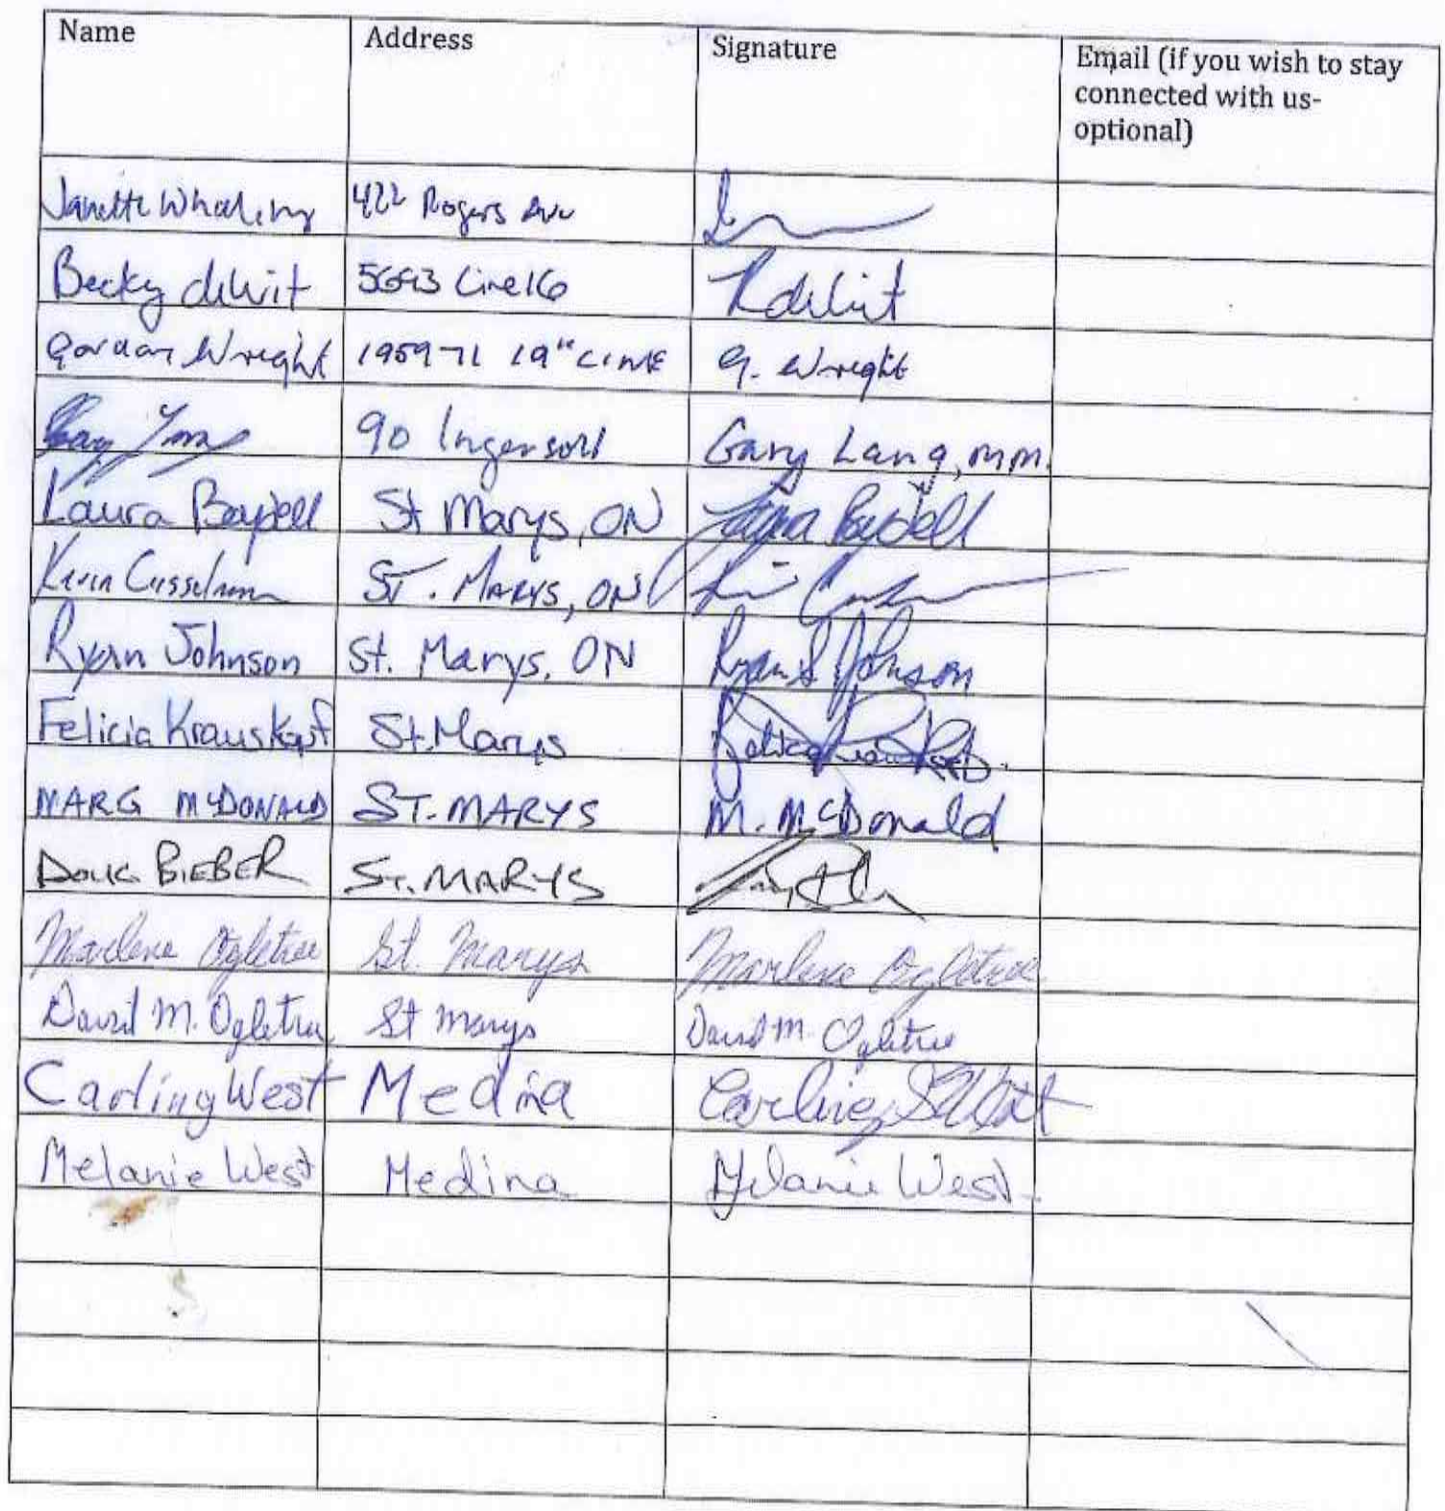 Name Address Signature Email (if you wish to stay
connected with us-
optional)
Janette Whaling 422 Rogers Ave
Becky deWit 5693 Line 16 R deWit
Gordon Wright 1959-71 19" LINE G. Wright
90 Ingersoll Gary Lang, mm.
Laura Baydell St Marys, ON Laura Baydell
Kevin Casselman ST. MARYS, ON
Ryan Johnson St. Marys, ON Ryan S Johnson
Felicia Krauskopf St. Marys
MARG McDONALD ST. MARYS M. McDonald
DOUG BIEBER ST. MARYS
Marlene Ogletree St. Marys Marlene Ogletree
David M. Ogletree St Marys David M. Ogletree
Carling West Medina Carling West
Melanie West Medina Melanie West